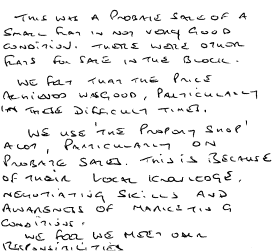 THIS WAS A PROBATE SALE OF A
SMALL FLAT IN NOT VERY GOOD
CONDITION. THERE WERE OTHER
FLATS FOR SALE IN THE BLOCK.
WE FELT THAT THE PRICE
ACHIEVED WAS GOOD, PARTICULARLY
IN THESE DIFFICULT TIMES.
WE USE 'THE PROPERTY SHOP'
ALOT, PARTICULARLY ON
PROBATE SALES. THIS IS BECAUSE
OF THEIR LOCAL KNOWLEDGE,
NEGOTIATING SKILLS AND
AWARENESS OF MARKETING
CONDITIONS.
WE FEEL WE MEET OUR
RESPONSIBILITIES